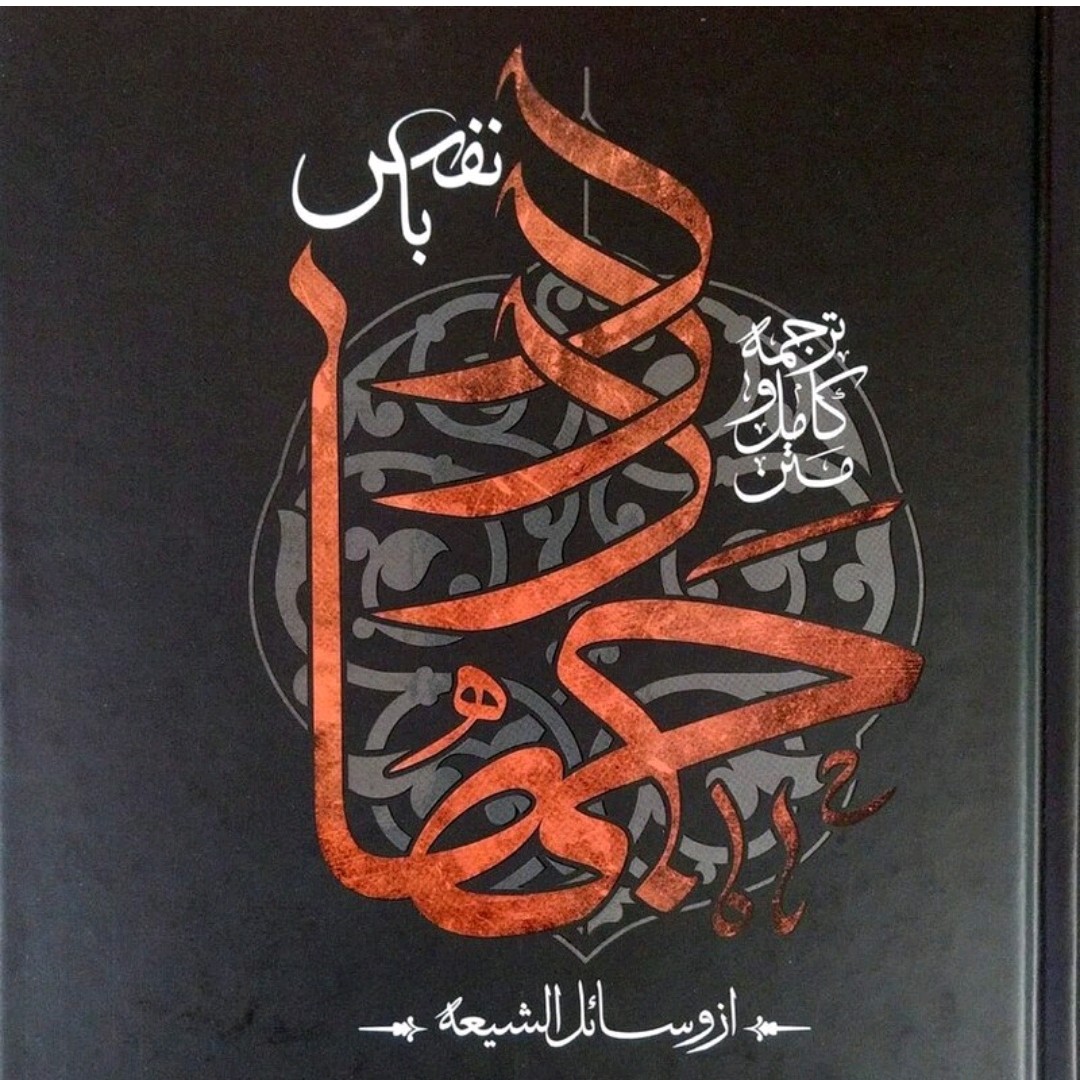 جهاد
با نفس
ترجمه
کامل و
متن
از وسائل الشیعه